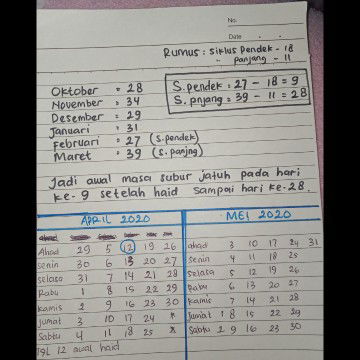 No.
Date
Rumus : Siklus Pendek - 18
" Panjang - 11
Oktober = 28
November = 34
Desember = 29
Januari = 31
Februari = 27 (s.pendek)
Maret = 39 (s.panjng)
S.pendek : 27 - 18 = 9
S. pnjang : 39 - 11 = 28
Jadi awal masa subur jatuh pada hari
ke-9 setelah haid sampai hari ke-28.
APRIL 2020
Ahad 29 5 12 19 26
senin 30 6 13 20 27
selasa 31 7 14 21 28
Rabu 1 8 15 22 29
Kamis 2 9 16 23 30
Jumat 3 10 17 24 *
Sabtu 4 11 18 25 *
TGL 12 awal haid
MEI 2020
ahad 3 10 17 24 31
senin 4 11 18 25
selasa 5 12 19 26
Rabu 6 13 20 27
Kamis 7 14 21 28
Jumat 1 8 15 22 29
Sabtu 2 9 16 23 30